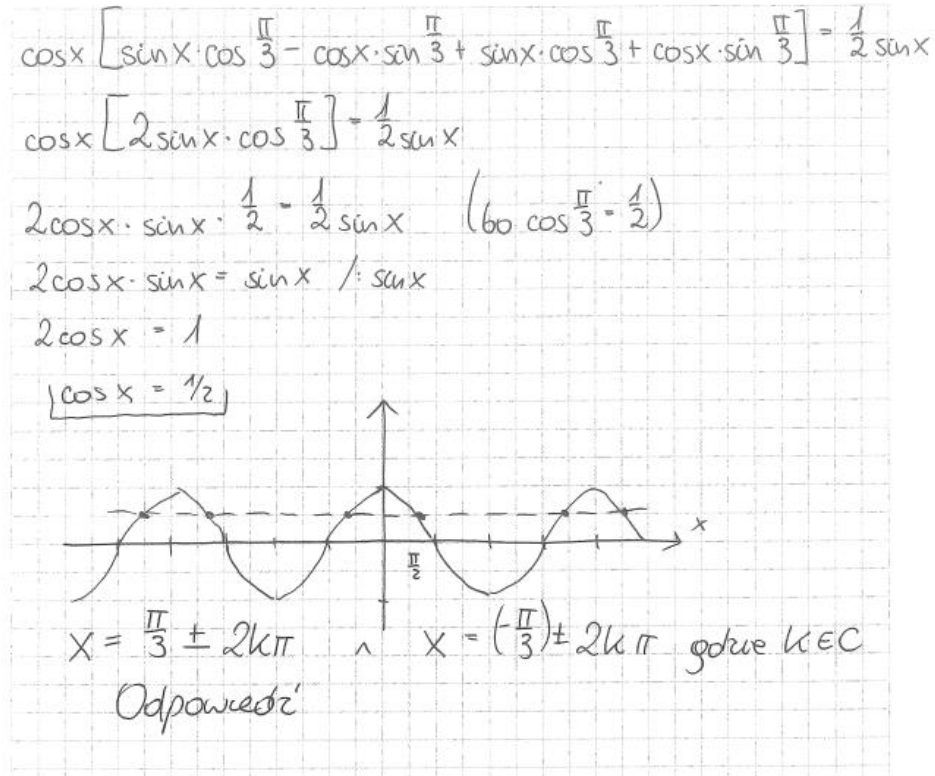 cosx [sinx·cos π/3 − cosx·sin π/3 + sinx·cos π/3 + cosx·sin π/3] = 1/2 sinx
cosx [2sinx·cos π/3] = 1/2 sinx
2cosx·sinx·1/2 = 1/2 sinx (bo cos π/3 = 1/2)
2cosx·sinx = sinx /: sinx
2cosx = 1
cosx = 1/2
x
π/2
x = π/3 ± 2kπ ∧ x = (−π/3) ± 2kπ gdzie k∈C
Odpowiedź